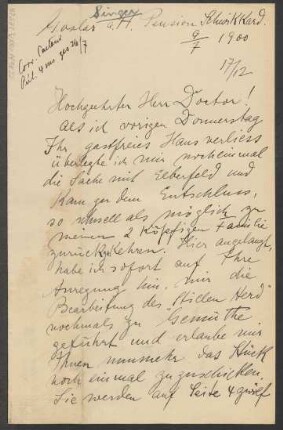 Singer
Goslar a. H. Pension
9/7 1900
17/12
Hochgeehrter Herr Doctor!
Als ich vorigen Donnerstag
Ihr gastfreies Haus verliess
überlegte ich mir nocheinmal
die Sache mit Elberfeld und
kam zu dem Entschluss,
so schnell als möglich zu
meiner 2 köpfigen Familie
zurückzukehren. Hier angelangt,
habe ich sofort auf Ihre
Anregung hin, mir die
Bearbeitung des "Stillen Herd"
nochmals zu Gemüthe
geführt und erlaube mir
Ihnen nunmehr das Stück
noch einmal zuzuschicken.
Sie werden auf Seite 4